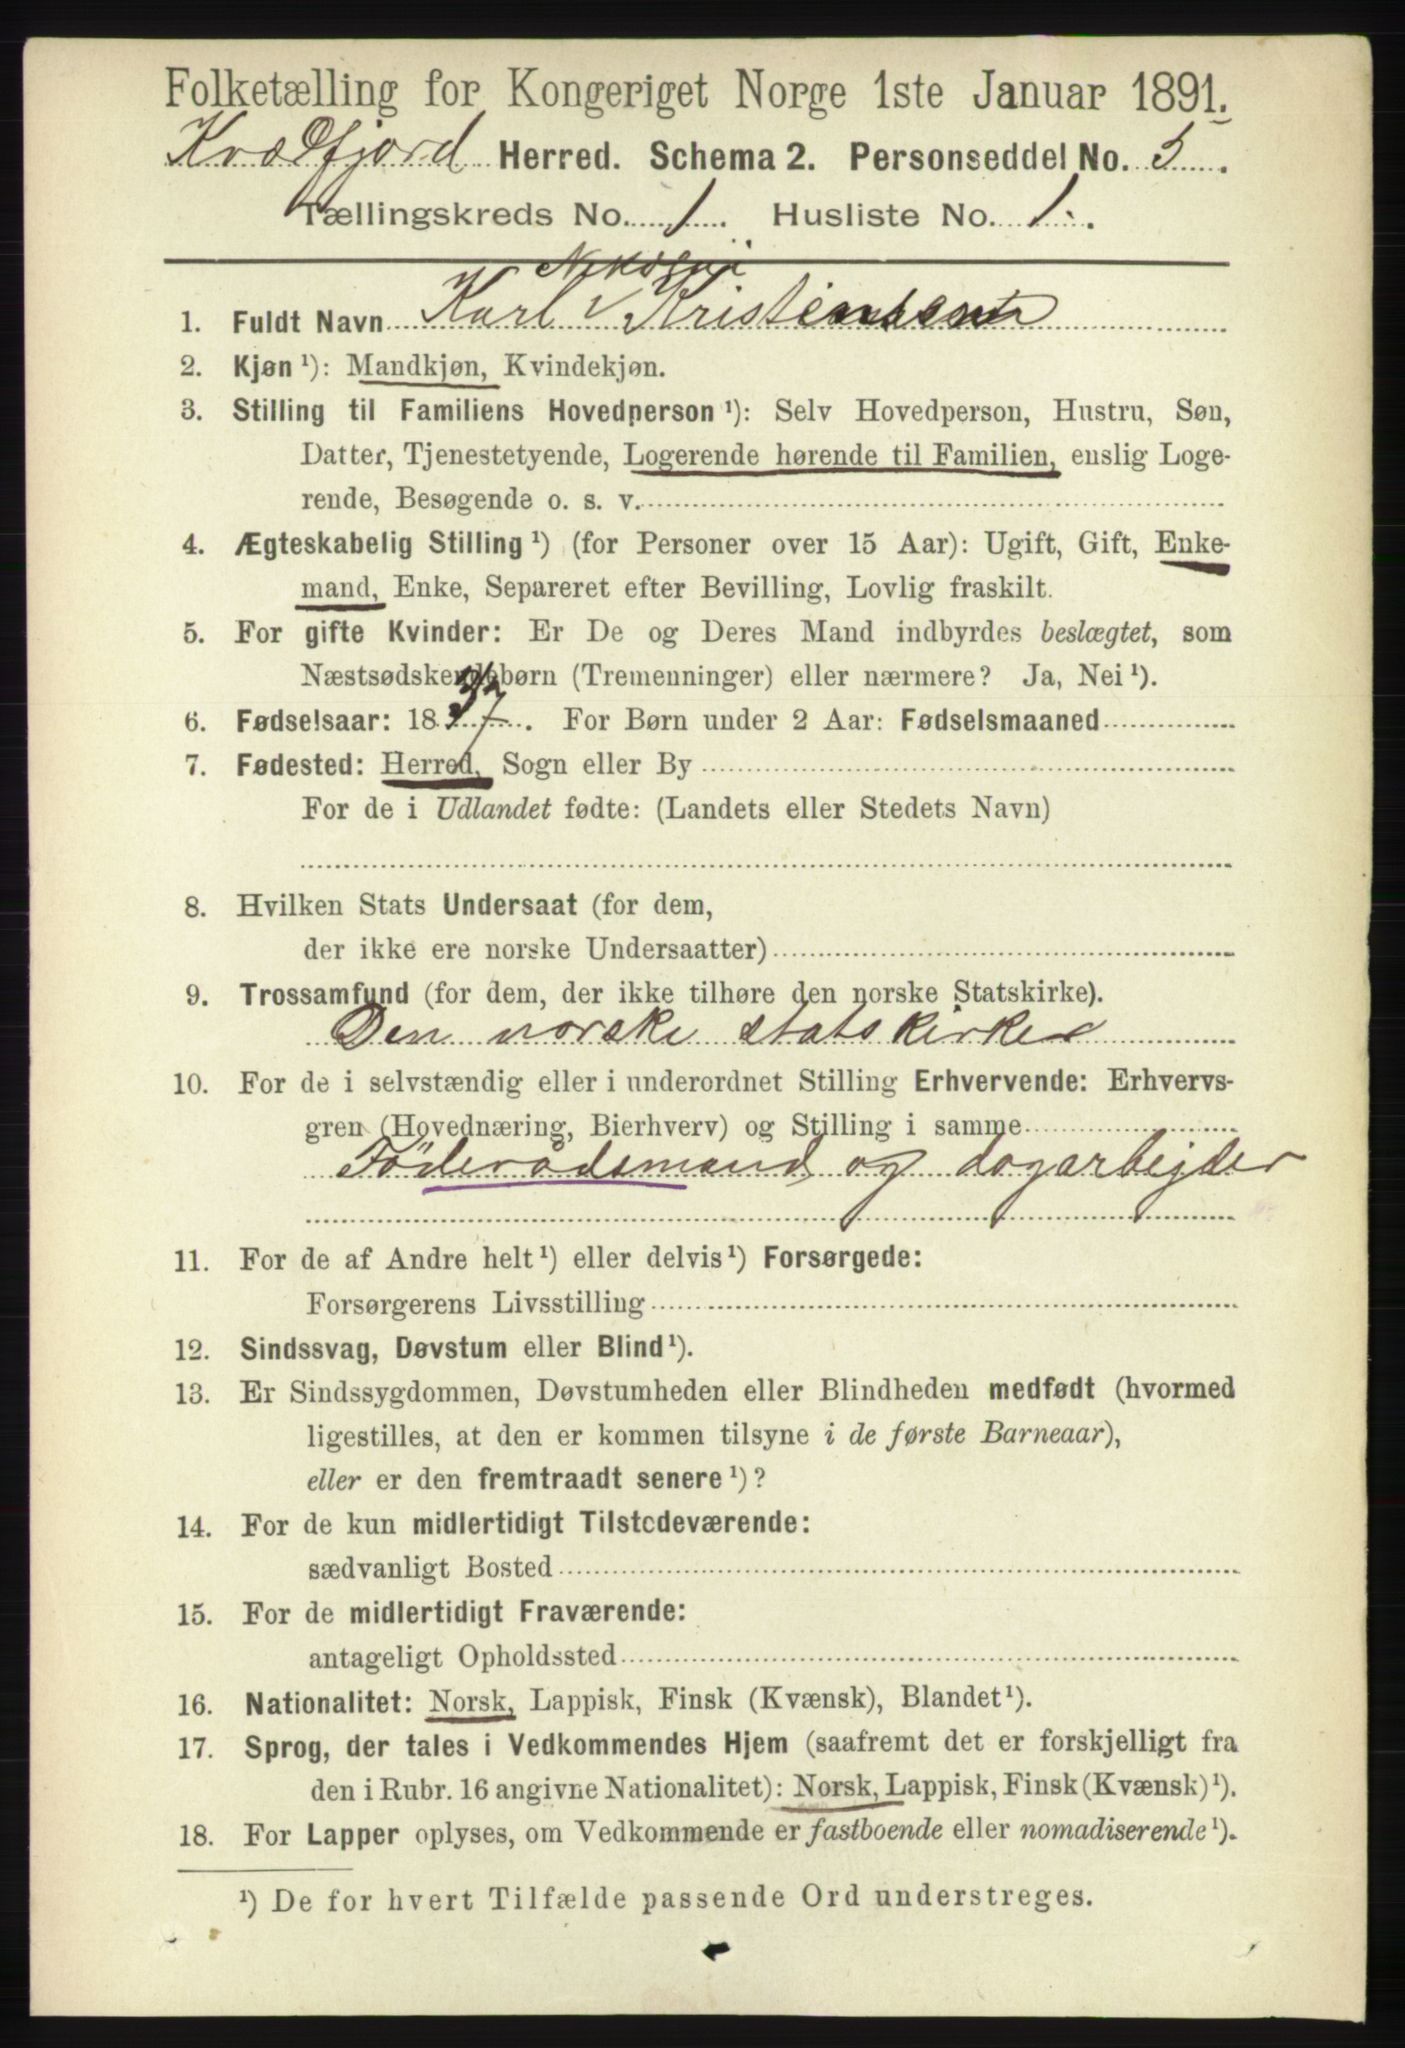 Folketælling for Kongeriget Norge 1ste Januar 1891.
Kvædfjord Herred. Schema 2. Personseddel No. 5.
Tællingskreds No. 1. Husliste No. 1.
1. Fuldt Navn Karl Kristensen
2. Kjøn ¹): Mandkjøn, Kvindekjøn.
3. Stilling til Familiens Hovedperson ¹): Selv Hovedperson, Hustru, Søn,
Datter, Tjenestetyende, Logerende hørende til Familien, enslig Loge-
rende, Besøgende o. s. v.
4. Ægteskabelig Stilling ¹) (for Personer over 15 Aar): Ugift, Gift, Enke-
mand, Enke, Separeret efter Bevilling, Lovlig fraskilt.
5. For gifte Kvinder: Er De og Deres Mand indbyrdes beslægtet, som
Næstsødskendebørn (Tremenninger) eller nærmere? Ja, Nei ¹).
6. Fødselsaar: 1837. For Børn under 2 Aar: Fødselsmaaned
7. Fødested: Herred, Sogn eller By
For de i Udlandet fødte: (Landets eller Stedets Navn)
8. Hvilken Stats Undersaat (for dem,
der ikke ere norske Undersaatter)
9. Trossamfund (for dem, der ikke tilhøre den norske Statskirke).
Den norske statskirke
10. For de i selvstændig eller i underordnet Stilling Erhvervende: Erhvervs-
gren (Hovednæring, Bierhverv) og Stilling i samme
Föderådsmand og dagarbejder
11. For de af Andre helt ¹) eller delvis ¹) Forsørgede:
Forsørgerens Livsstilling
12. Sindssvag, Døvstum eller Blind ¹).
13. Er Sindssygdommen, Døvstumheden eller Blindheden medfødt (hvormed
ligestilles, at den er kommen tilsyne i de første Barneaar),
eller er den fremtraadt senere ¹)?
14. For de kun midlertidigt Tilstedeværende:
sædvanligt Bosted
15. For de midlertidigt Fraværende:
antageligt Opholdssted
16. Nationalitet: Norsk, Lappisk, Finsk (Kvænsk), Blandet ¹).
17. Sprog, der tales i Vedkommendes Hjem (saafremt det er forskjelligt fra
den i Rubr. 16 angivne Nationalitet): Norsk, Lappisk, Finsk (Kvænsk) ¹).
18. For Lapper oplyses, om Vedkommende er fastboende eller nomadiserende ¹).
¹) De for hvert Tilfælde passende Ord understreges.